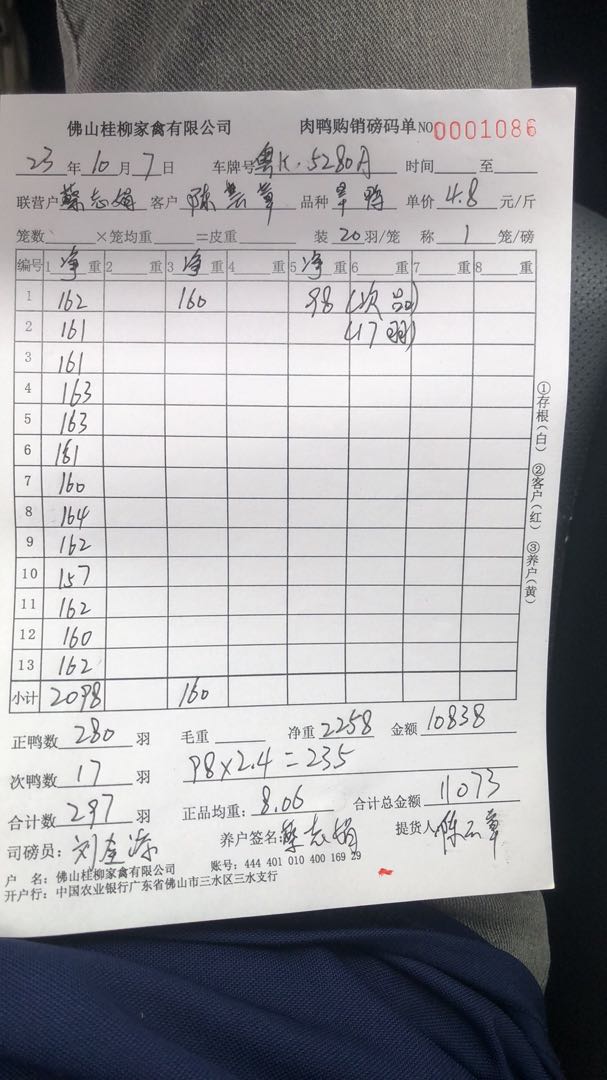 佛山桂柳家禽有限公司 肉鸭购销磅码单 NO 0001086
23 年 10 月 7 日 车牌号 粤K·5280A 时间 至
联营户 蔡志娟 客户 陈 品种 单价 4.8 元/斤
笼数 ×笼均重 =皮重 装 20 羽/笼 称 1 笼/磅
编号 1 净 重 2 重 3 净 重 4 重 5 净 重 6 重 7 重 8 重
1 162 160 98 (次品)
2 161 (17羽)
3 161
4 163
5 163
6 161
7 160
8 164
9 162
10 157
11 162
12 160
13 162
小计 2098 160
正鸭数 280 羽 毛重 净重 2258 金额 10838
次鸭数 17 羽 98×2.4=235
合计数 297 羽 正品均重: 8.06 合计总金额 11073
司磅员: 刘 养户签名: 蔡志娟 提货人 陈
户 名: 佛山桂柳家禽有限公司 账号: 444 401 010 400 169 29
开户行: 中国农业银行广东省佛山市三水区三水支行
①存根(白) ②客户(红) ③养户(黄)